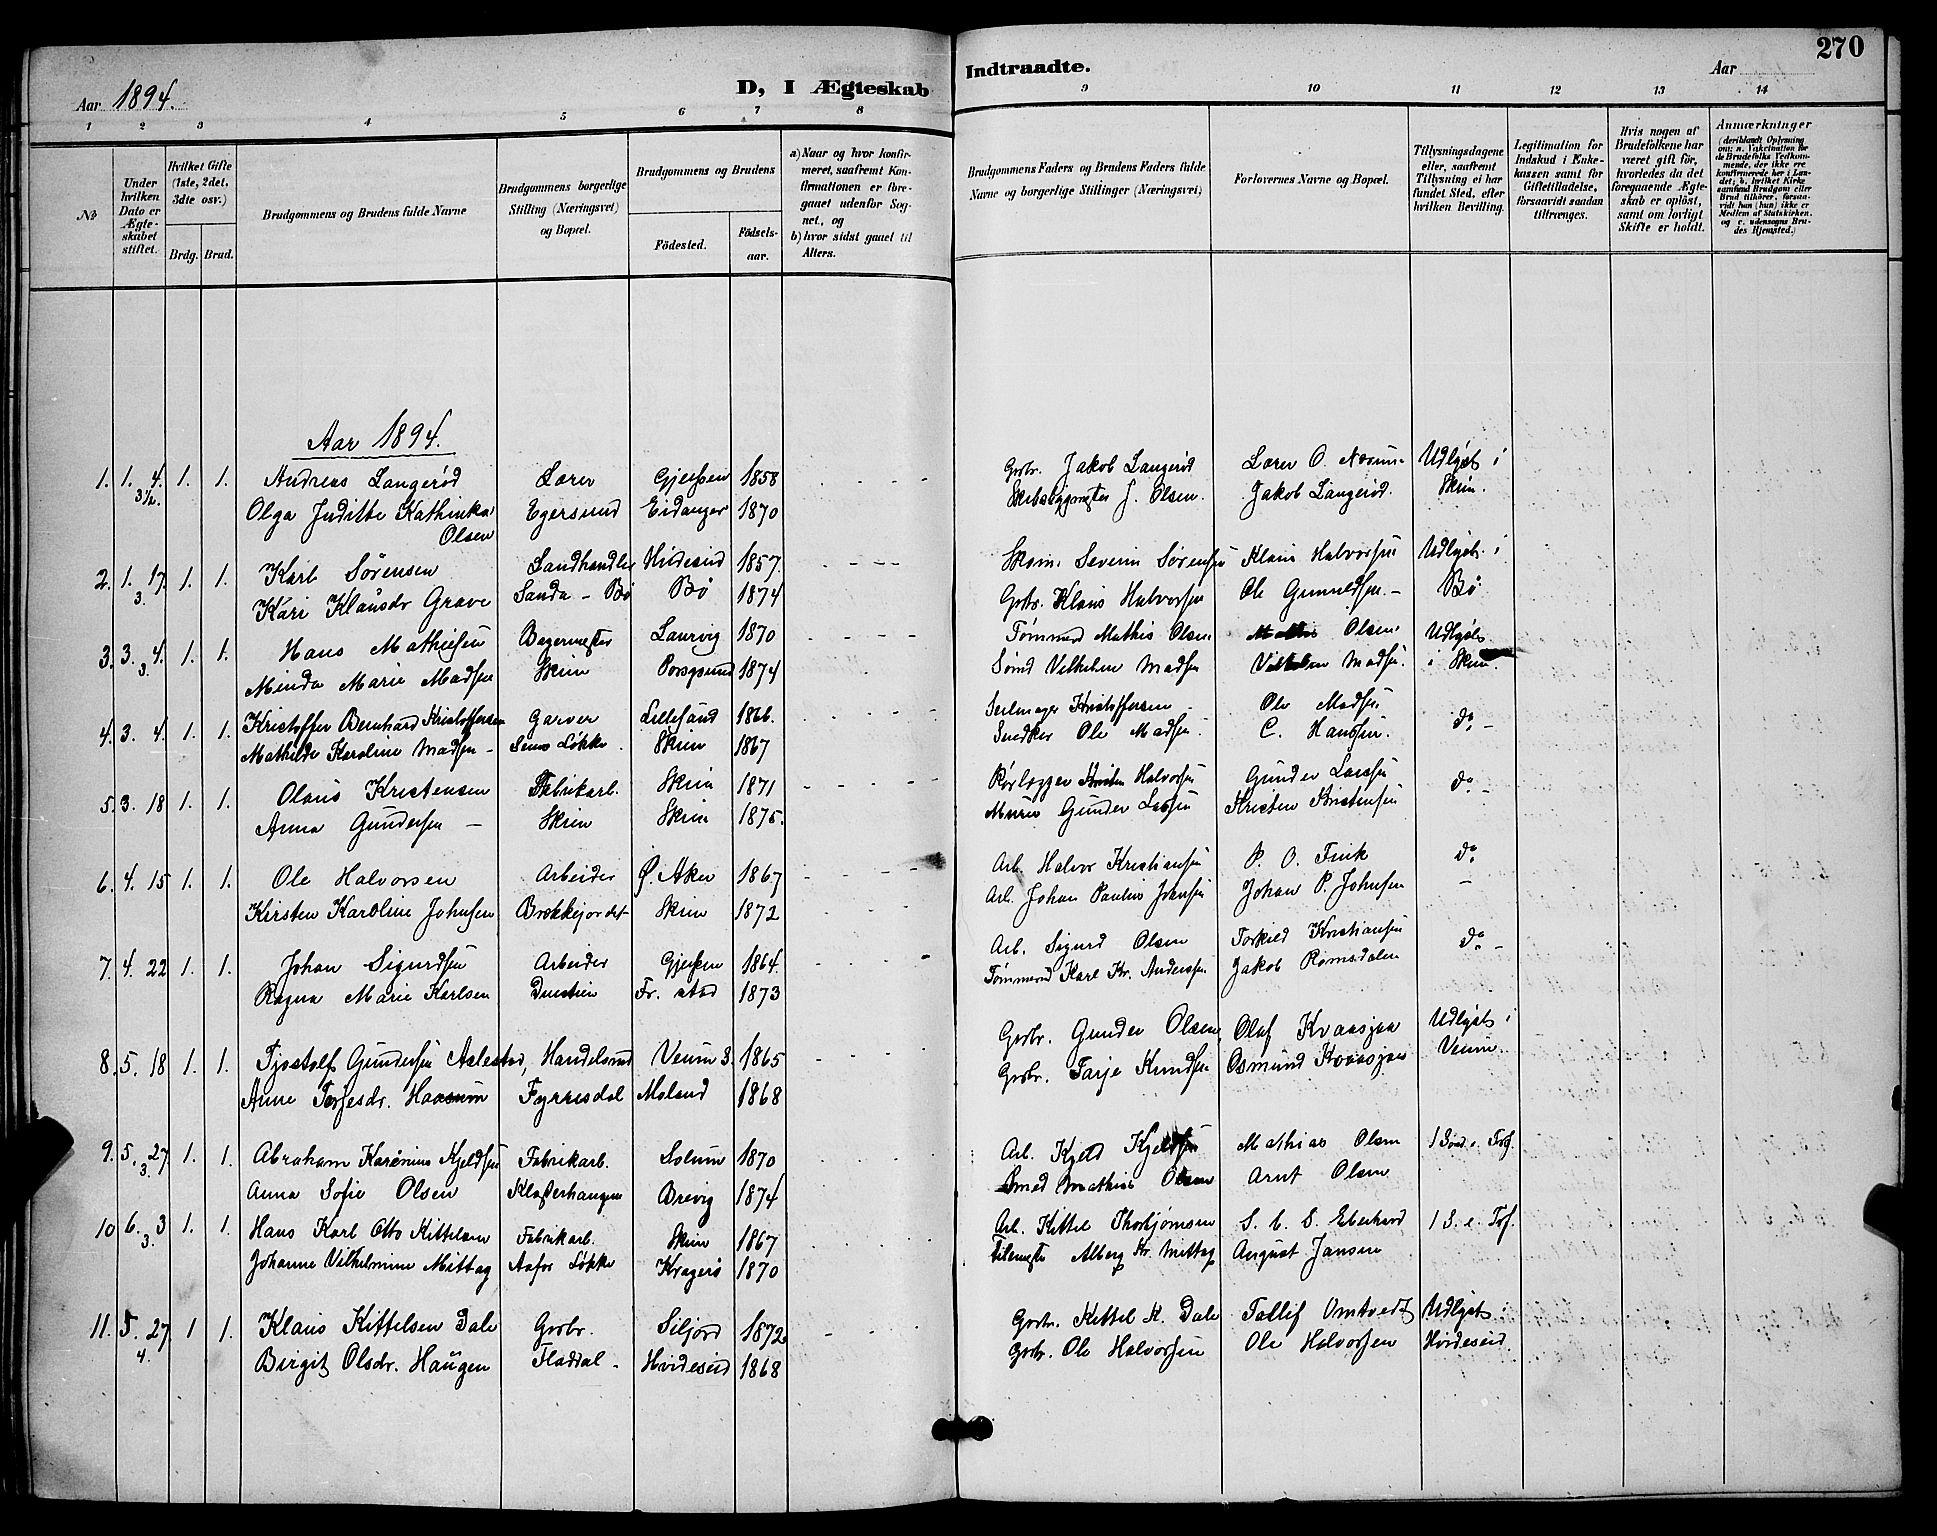 Aar 1894.
D, I Ægteskab
1 2 3 4 5 6 7 8
№
Under hvilken Dato er Ægteskabet stiftet.
Hvilket Gifte (1ste, 2det, 3dte osv.)
Brdg. Brud.
Brudgommens og Brudens fulde Navne
Brudgommens borgerlige Stilling (Næringsvei) og Bopæl.
Brudgommens og Brudens
Födested. Födsels-aar.
a) Naar og hvor konfirmeret, saafremt Konfirmationen er foregaaet udenfor Sognet, og
b) hvor sidst gaaet til Alters.
Aar 1894.
1. 1. 4. 1. 1. Andreas Langerød Lærer Gjerpen 1858
3½. Olga Juditte Kathinka Egersund Eidanger 1870
Olsen
2. 1. 17. 1. 1. Karl Sörensen Landhandler Hvideseid 1857.
3. Kari Klausdr Grave Sanda - Bö Bö 1874
3. 3. 4. 1. 1. Hans Mathiesen Bagermester Laurvig 1870
3. Minda Marie Madsen Skien Porsgrund 1874
4. 3. 4. 1. 1. Kristoffer Bernhard Kristoffersen Garver Lillesand 1866.
Mathilde Karoline Madsen - Løkke. Skien 1867
5. 3. 18 1. 1. Olaus Kristensen Fabrikarb. Skien 1871
Anna Gundersen - Skien Skien 1875.
6. 4. 15 1. 1. Ole Halvorsen Arbeider Ø. Aker 1867
Kirsten Karoline Johnsen Brekkejordet Skien 1872
7. 4. 22 1. 1. Johan Sigurdsen Arbeider Gjerpen 1864.
Ragna Marie Karlsen Fr. stad 1873
8. 5. 18 1. 1. Tjostolf Gundersen Aslestad, Handelsmd Veum 1865
Anne Terjesdr. Haasum Fyrresdal Moland 1868
9. 5. 27 1. 1. Abraham Karenius Kjeldsen Fabrikarb. Solum 1870
3. Anna Sofie Olsen Klosterhaugen Brevig 1874
10 6. 3 1. 1. Hans Karl Otto Kittelsen Fabrikarb. Skien 1867
3. Johanne Vilhelmine Mittag Aafos Løkke Kragerö 1870
11. 5. 27 1 1. Klaus Kittelsen Dale Grbr. Siljord 1872
4. Birgit Olsdr. Haugen Fladdal - Hvideseid 1868
Indtraadte.
Aar
270
9 10 11 12 13 14
Brudgommens Faders og Brudens Faders fulde Navne og borgerlige Stillinger (Næringsvei)
Forlovernes Navne og Bopæl.
Tillysningsdagene eller, saafremt Tillysning ei har fundet Sted, efter hvilken Bevilling.
Legitimation for Indskud i Enkekassen samt for Giftetilladelse, forsaavidt saadan tiltrænges.
Hvis nogen af Brudefolkene har været gift för, hvorledes da det foregaaende Ægteskab er oplöst, samt om lovligt Skifte er holdt.
Anmærkninger
(deriblandt Oplysning om: a. Vakcination for de Brudefolks Vedkommende, der ikke ere konfirmerede her i Landet; b. hvilket Kirkesamfund Brudgom eller Brud tilhörer, forsaavidt han (hun) ikke er Medlem af Statskirken, og c. udensogns Brudes Hjemsted.)
Grbr. Jakob Langerød Lærer O. Næsum Udlyst i
Skibsbygmester J. Olsen. Jakob Langerød. Skien.
Skom. Severin Sörensen Klaus Halvorsen Udlyst. i
Grbr. Klaus Halvorsen Ole Gunuldsen. - Bö
Tømmermd Mathis Olsen. Mathis Olsen. Udlyst
Sömd Vilhelm Madsen Vilhelm Madsen. i Skien.
Seilmager Kristoffersen - Ole Madsen
Snedker Ole Madsen. C. Hansen. do -
Rørlægger Kristen Halvorsen Gunder Larsen do -
Murer Gunder Larsen Kristen Kristensen
Arb. Halvor Kristiansen P. O. Fink do
Arb. Johan Paulin Johnsen Johan P. Johnsen -
Arb. Sigurd Olsen Torkild Kristiansen do -
Tømmermd Karl Kr. Anderssen Jakob Romsdalen
Grbr. Gunder Olsen, Olaf Kvaasjaa Udlyst i
Grbr. Tarje Knudsen Osmund Kvaasjaa Veum.
Arb. Kjeld Kjeldsen Mathias Olsen
Smed Mathias Olsen Arnt Olsen
Arb. Kittel Thorbjörnsen S. C. S. Eberhard 1 S. e. Tref.
Alberg Kr. Mittag August Jansen
Grbr. Kittel K. Dale Tollif Omtvedt Udlyst i
Grbr. Ole Halvorsen Ole Halvorsen Hvideseid.